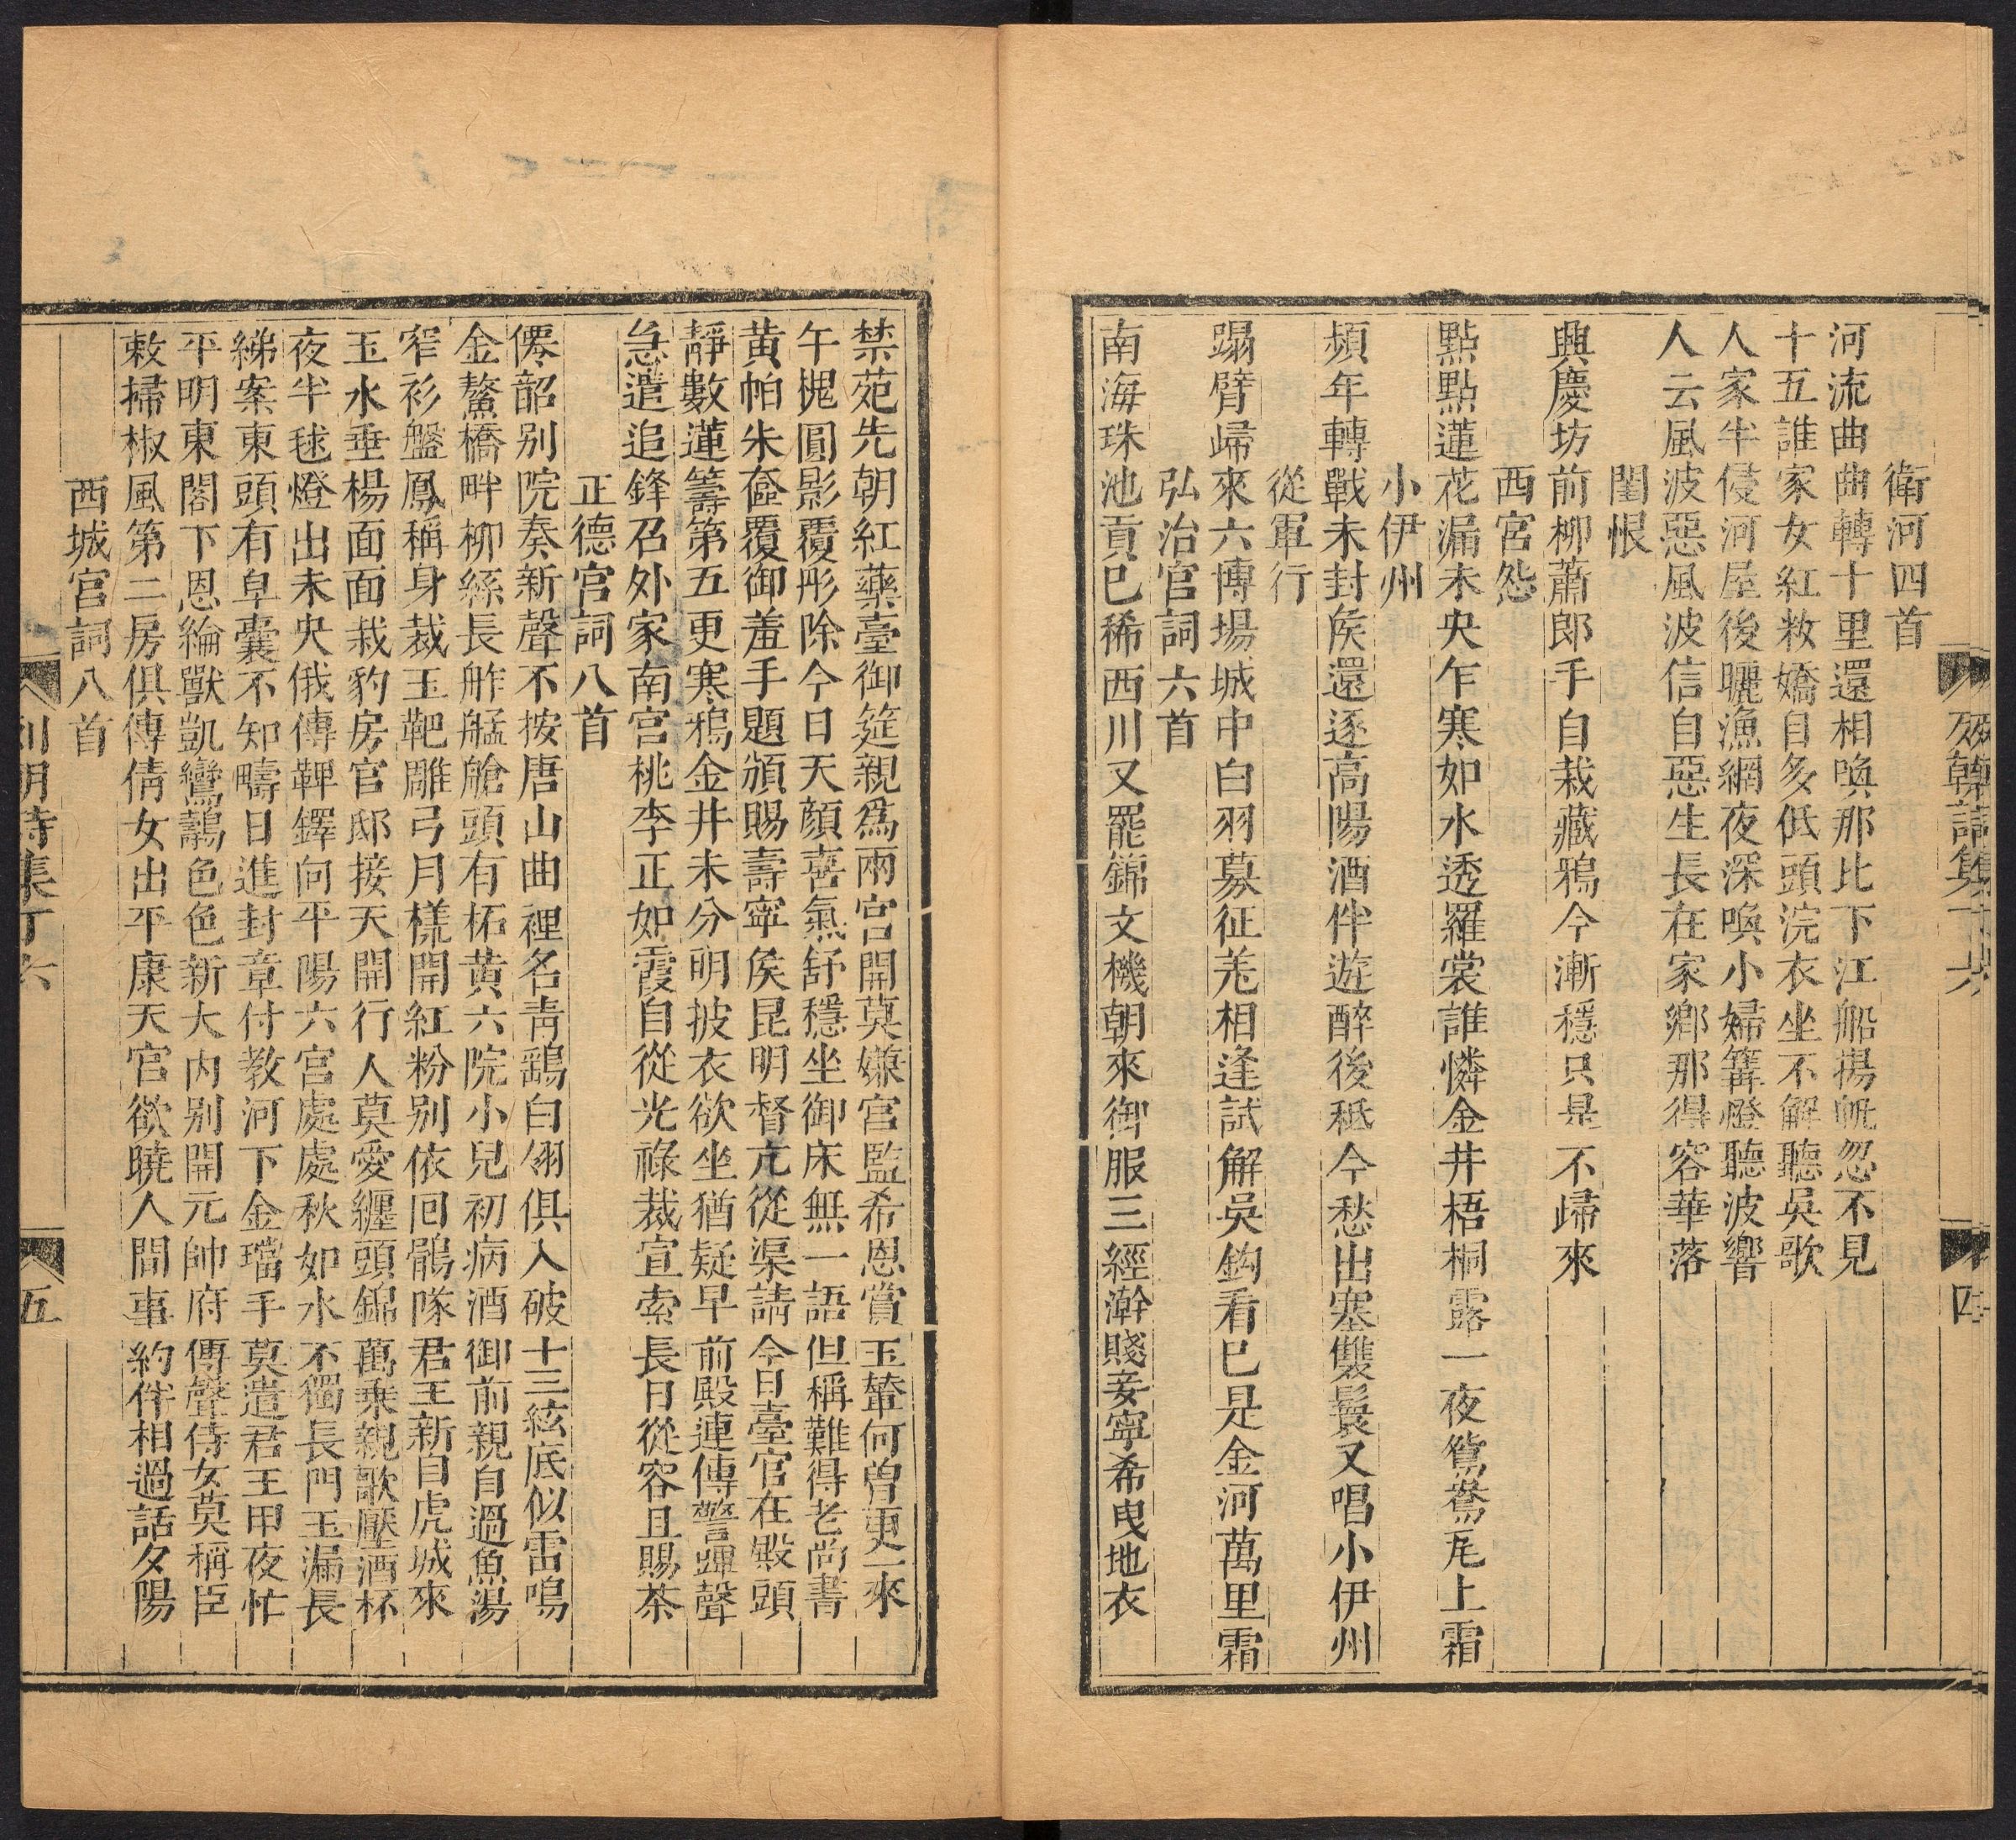 衛河四首
河流曲曲轉十里還相喚那比下江船揚帆忽不見
十五誰家女紅妝嬌自多低頭浣衣坐不解聽吳歌
人家半侵河屋後曬漁網夜深喚小婦篝燈聽波響
人云風波惡風波信自惡生長在家鄉那得容華落
閨恨
興慶坊前柳蕭郎手自栽藏鴉今漸穩只是不歸來
西宮怨
點點蓮花漏未央乍寒如水透羅裳誰憐金井梧桐露一夜鴛鴦瓦上霜
小伊州
頻年轉戰未封侯還逐高陽酒伴遊醉後秪今愁出塞雙鬟又唱小伊州
從軍行
蹋臂歸來六博場城中白羽募征羌相逢試解吳鈎看已是金河萬里霜
弘治宮詞六首
南海珠池貢已稀西川又罷錦文機朝來御服三經澣賤妾寧希曳地衣
四
禁苑先朝紅藥臺御筵親爲兩宮開莫嫌宮監希恩賞玉輦何曾更一來
午槐圓影覆彤除今日天顔喜氣舒穩坐御床無一語但稱難得老尚書
黄帕朱奩覆御羞手題頒賜壽寧侯昆明督亢從渠請今日臺官在殿頭
靜數蓮籌第五更寒鴉金井未分明披衣欲坐猶疑早前殿連傳警蹕聲
急遣追鋒召外家南宮桃李正如霞自從光祿裁宣索長日從容且賜茶
正德宮詞八首
僊韶别院奏新聲不按唐山曲裡名靑鷂白翎俱入破十三絃底似雷鳴
金鰲橋畔柳絲長舴艋艙頭有柘黄六院小兒初病酒御前親自過魚湯
窄衫盤鳳稱身裁玉靶雕弓月樣開紅粉别依回鶻隊君王新自虎城來
玉水垂楊面面栽豹房官邸接天開行人莫愛纏頭錦萬乘親歌壓酒杯
夜半毬燈出未央俄傳鞞鐸向平陽六宮處處秋如水不獨長門玉漏長
綈案東頭有皁囊不知疇日進封章付教河下金璫手莫遣君王甲夜忙
平明東閣下恩綸獸凱鸞鶿色色新大内别開元帥府傳聲侍女莫稱臣
敕掃椒風第二房俱傳倩女出平康天官欲曉人間事約伴相過話夕陽
西城宮詞八首
列朝詩集丁六
五